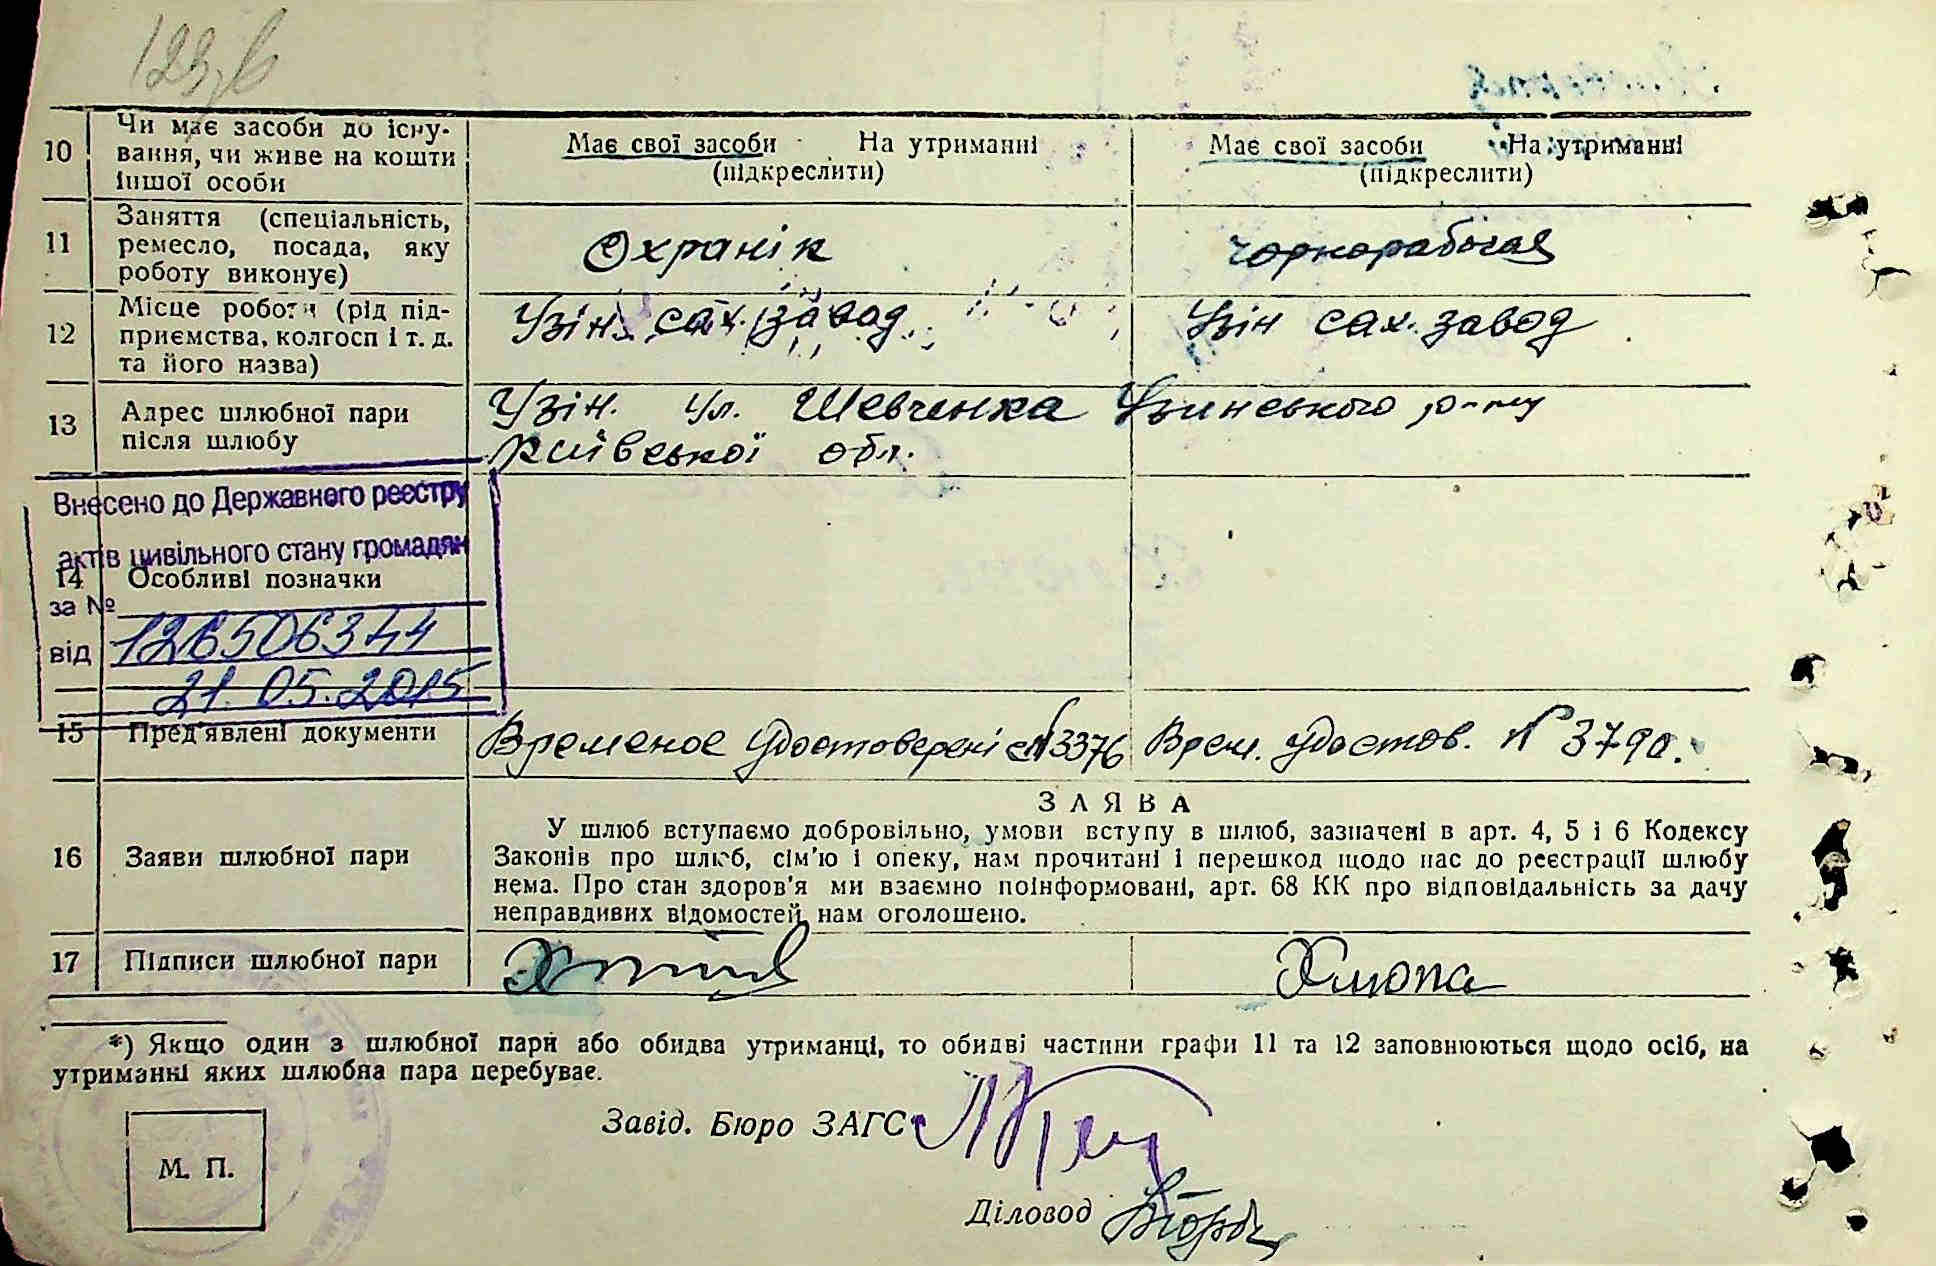 10
Чи має засоби до існу-
вання, чи живе на кошти
іншої особи
Має свої засоби На утриманні
(підкреслити)
Має свої засоби На утриманні
(підкреслити)
11
Заняття (спеціальність,
ремесло, посада, яку
роботу виконує)
Охранік
чорнорабочая
12
Місце роботи (рід під-
приємства, колгосп і т. д.
та його назва)
Узін. сах. завод.
Узін сах. завод
13
Адрес шлюбної пари
після шлюбу
Узін. ул. Шевченка Узинського р-ну
Київської обл.
Внесено до Державного реєстру
актів цивільного стану громадян
14
Особливі позначки
за №
від
21.05.2015
15
Пред'явлені документи
Временое Удостоверені №3376
Врем. удостов. № 3790.
16
Заяви шлюбної пари
ЗАЯВА
У шлюб вступаємо добровільно, умови вступу в шлюб, зазначені в арт. 4, 5 і 6 Кодексу
Законів про шлюб, сім'ю і опеку, нам прочитані і перешкод щодо нас до реєстрації шлюбу
нема. Про стан здоров'я ми взаємно поінформовані, арт. 68 КК про відповідальність за дачу
неправдивих відомостей нам оголошено.
17
Підписи шлюбної пари
*) Якщо один з шлюбної пари або обидва утриманці, то обидві частини графи 11 та 12 заповнюються щодо осіб, на
утриманні яких шлюбна пара перебуває.
Завід. Бюро ЗАГС
М. П.
Діловод